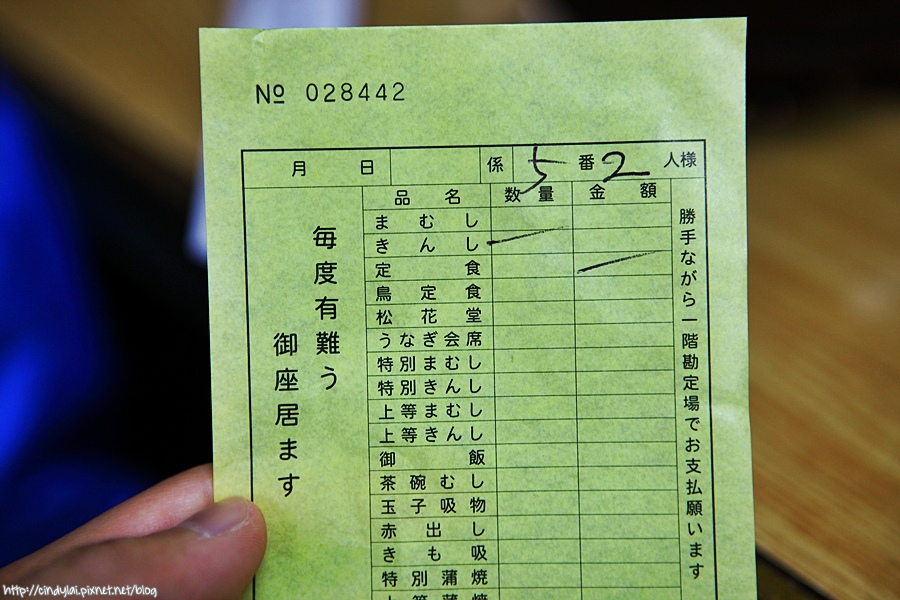 № 028442
月 日 係 5 番 2 人様
品名 数量 金額
まむし
きんし
定食
鳥定食
松花堂
うなぎ会席
特別まむし
特別きんし
上等まむし
上等きんし
御飯
茶碗むし
玉子吸物
赤出し
きも吸
特別蒲焼
毎度有難う
御座居ます
勝手ながら一階勘定場でお支払願います
http://cindylai.pixnet.net/blog